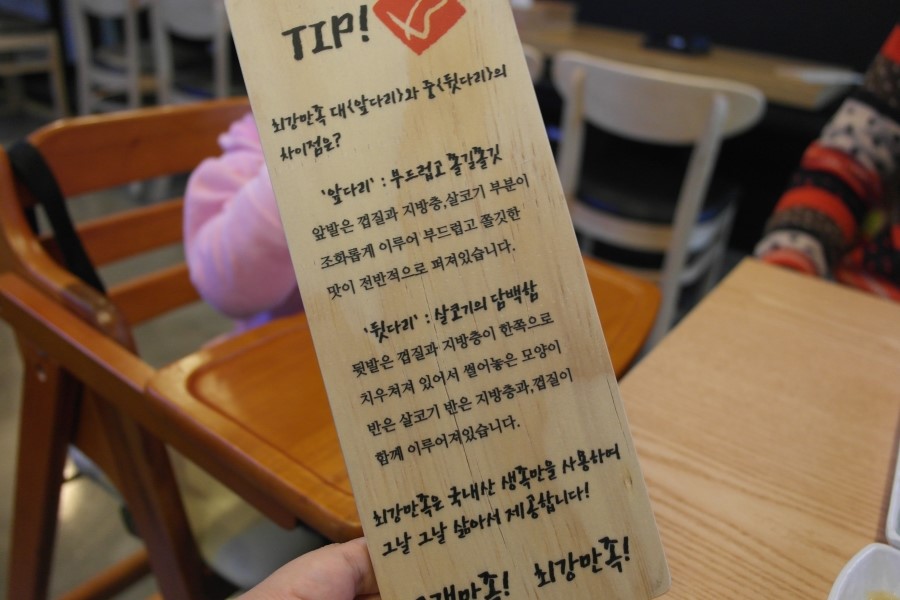 TIP!
최강만족 대<앞다리>와 중<뒷다리>의
차이점은?
'앞다리' : 부드럽고 쫄깃쫄깃
앞발은 껍질과 지방층,살코기 부분이
조화롭게 이루어 부드럽고 쫄깃한
맛이 전반적으로 퍼져있습니다.
'뒷다리' : 살코기의 담백함
뒷발은 껍질과 지방층이 한쪽으로
치우쳐져 있어서 썰어놓은 모양이
반은 살코기 반은 지방층과,껍질이
함께 이루어져있습니다.
최강만족은 국내산 생족만을 사용하며
그날 그날 삶아서 제공합니다!
최강만족!